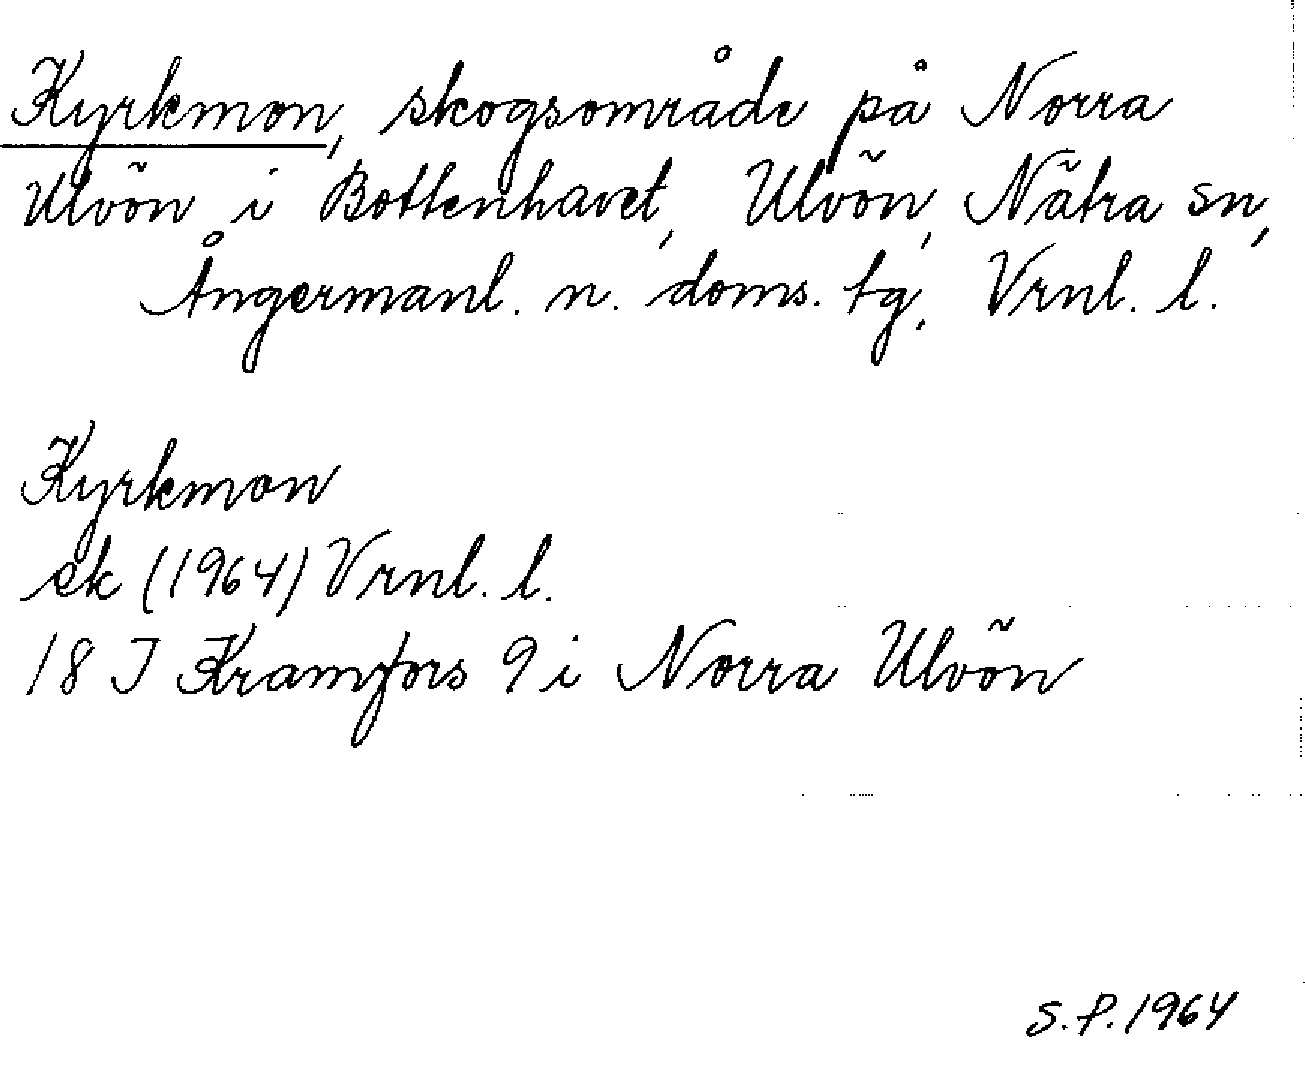 Kyrkmon, skogsområde på Norra
Ulvön i Bottenhavet, Ulvön, Nätra sn,
Ångermanl. n. doms. tg, Vrnl. l.
Kyrkmon
ek (1964) Vrnl. l.
18 I Kramfors 9 i Norra Ulvön
S.P. 1964